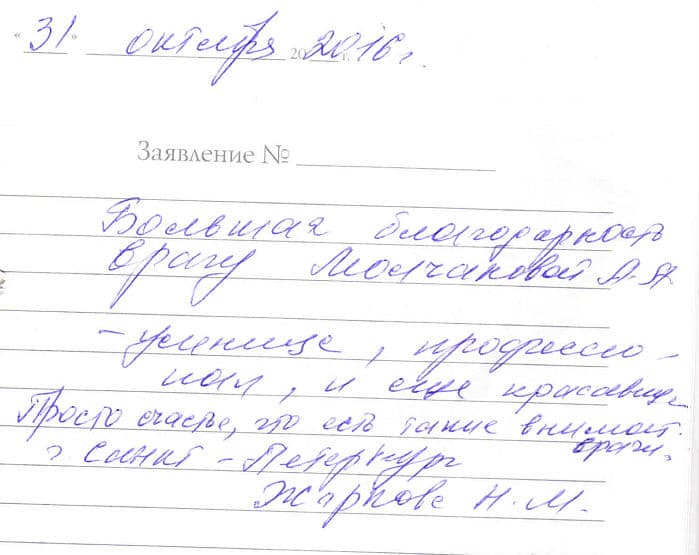 "31" октября 20 2016 г.
Заявление №
Большая благодарность
врачу Молчановой А.А
- умнице, профессио-
нал, и еще красавица
Просто счастье, что есть такие внимат.
врачи.
г Санкт-Петербург
Жаркова Н.М.